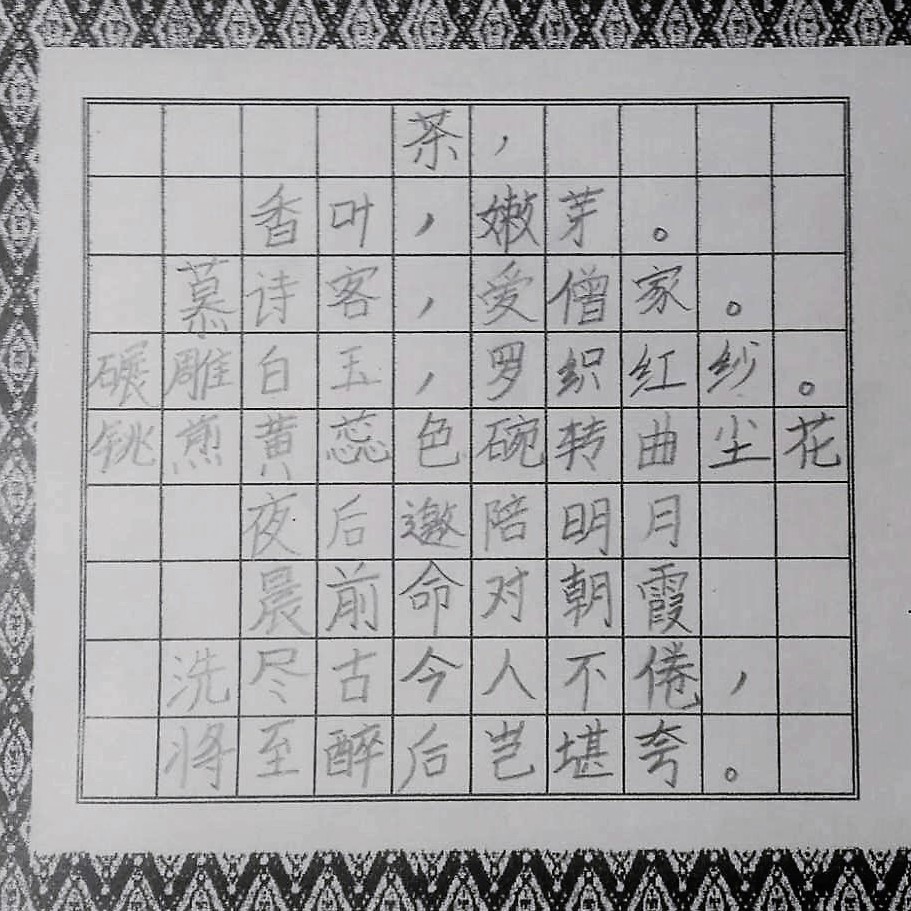 茶，
香叶，嫩芽。
慕诗客，爱僧家。
碾雕白玉，罗织红纱。
铫煎黄蕊色碗转曲尘花
夜后邀陪明月
晨前命对朝霞
洗尽古今人不倦，
将至醉后岂堪夸。